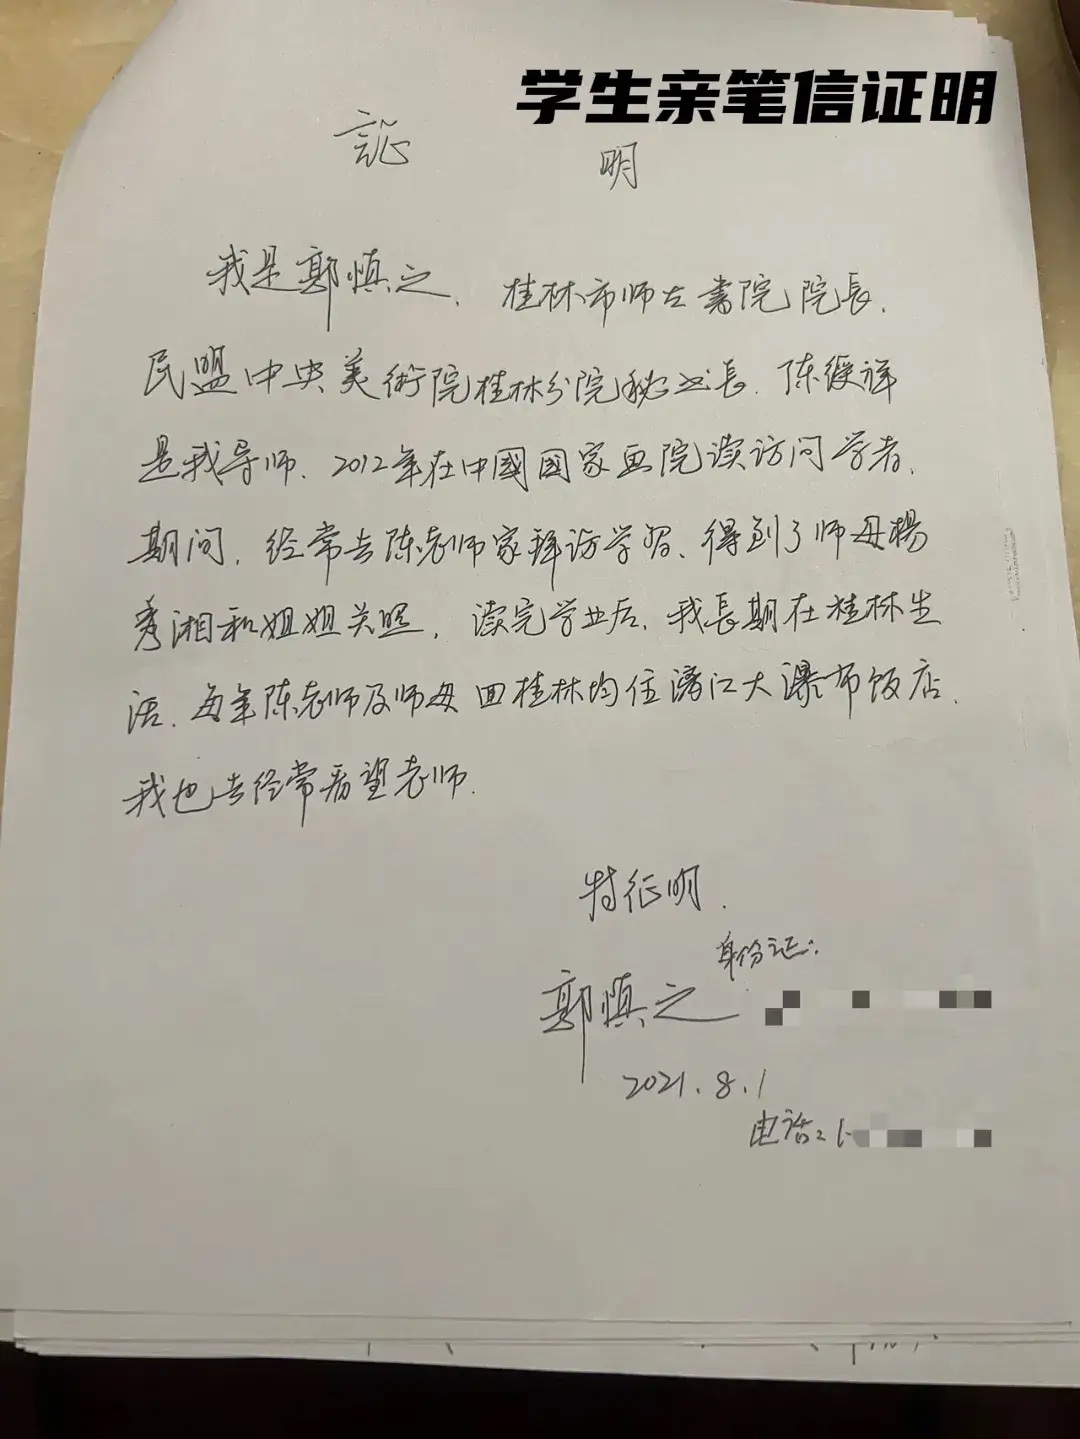 学生亲笔信证明
証 明
我是郭慎之. 桂林市师古書院院長.
民盟中央美術院桂林分院秘书長. 陈绶祥
是我导师、2012年在中國國家画院读访问学者.
期间, 经常去陈老师家拜访学习、得到了师母楊
秀湘和姐姐关照, 读完学业后, 我長期在桂林生
活. 每年陈老师及师母回桂林均住漓江大瀑布饭店.
我也去经常看望老师.
特征明.
身份证:
郭慎之
2021.8.1
电话: 1